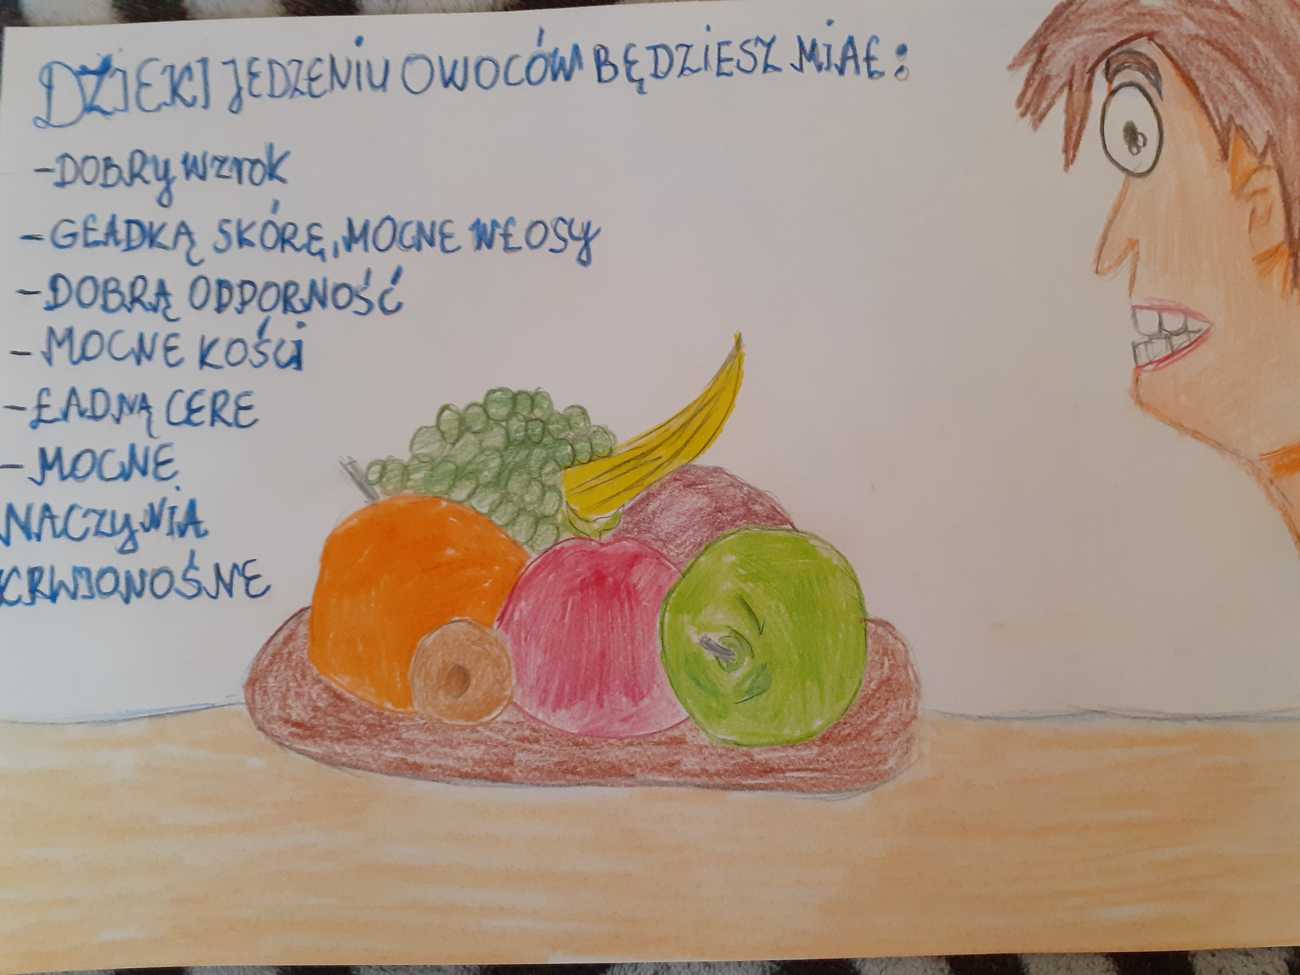 DZIĘKI JEDZENIU OWOCÓW BĘDZIESZ MIAŁ:
-DOBRY wzrok
-GŁADKĄ SKÓRĘ, MOCNE WŁOSY
-DOBRĄ ODPORNOŚĆ
-MOCNE KOŚCI
-ŁADNĄ CERE
-MOCNE
NACZYNIA
KRWIONOŚNE